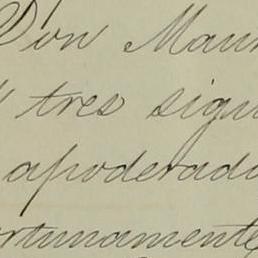 Don Maur
tres sigu
apoderado
ortunamente